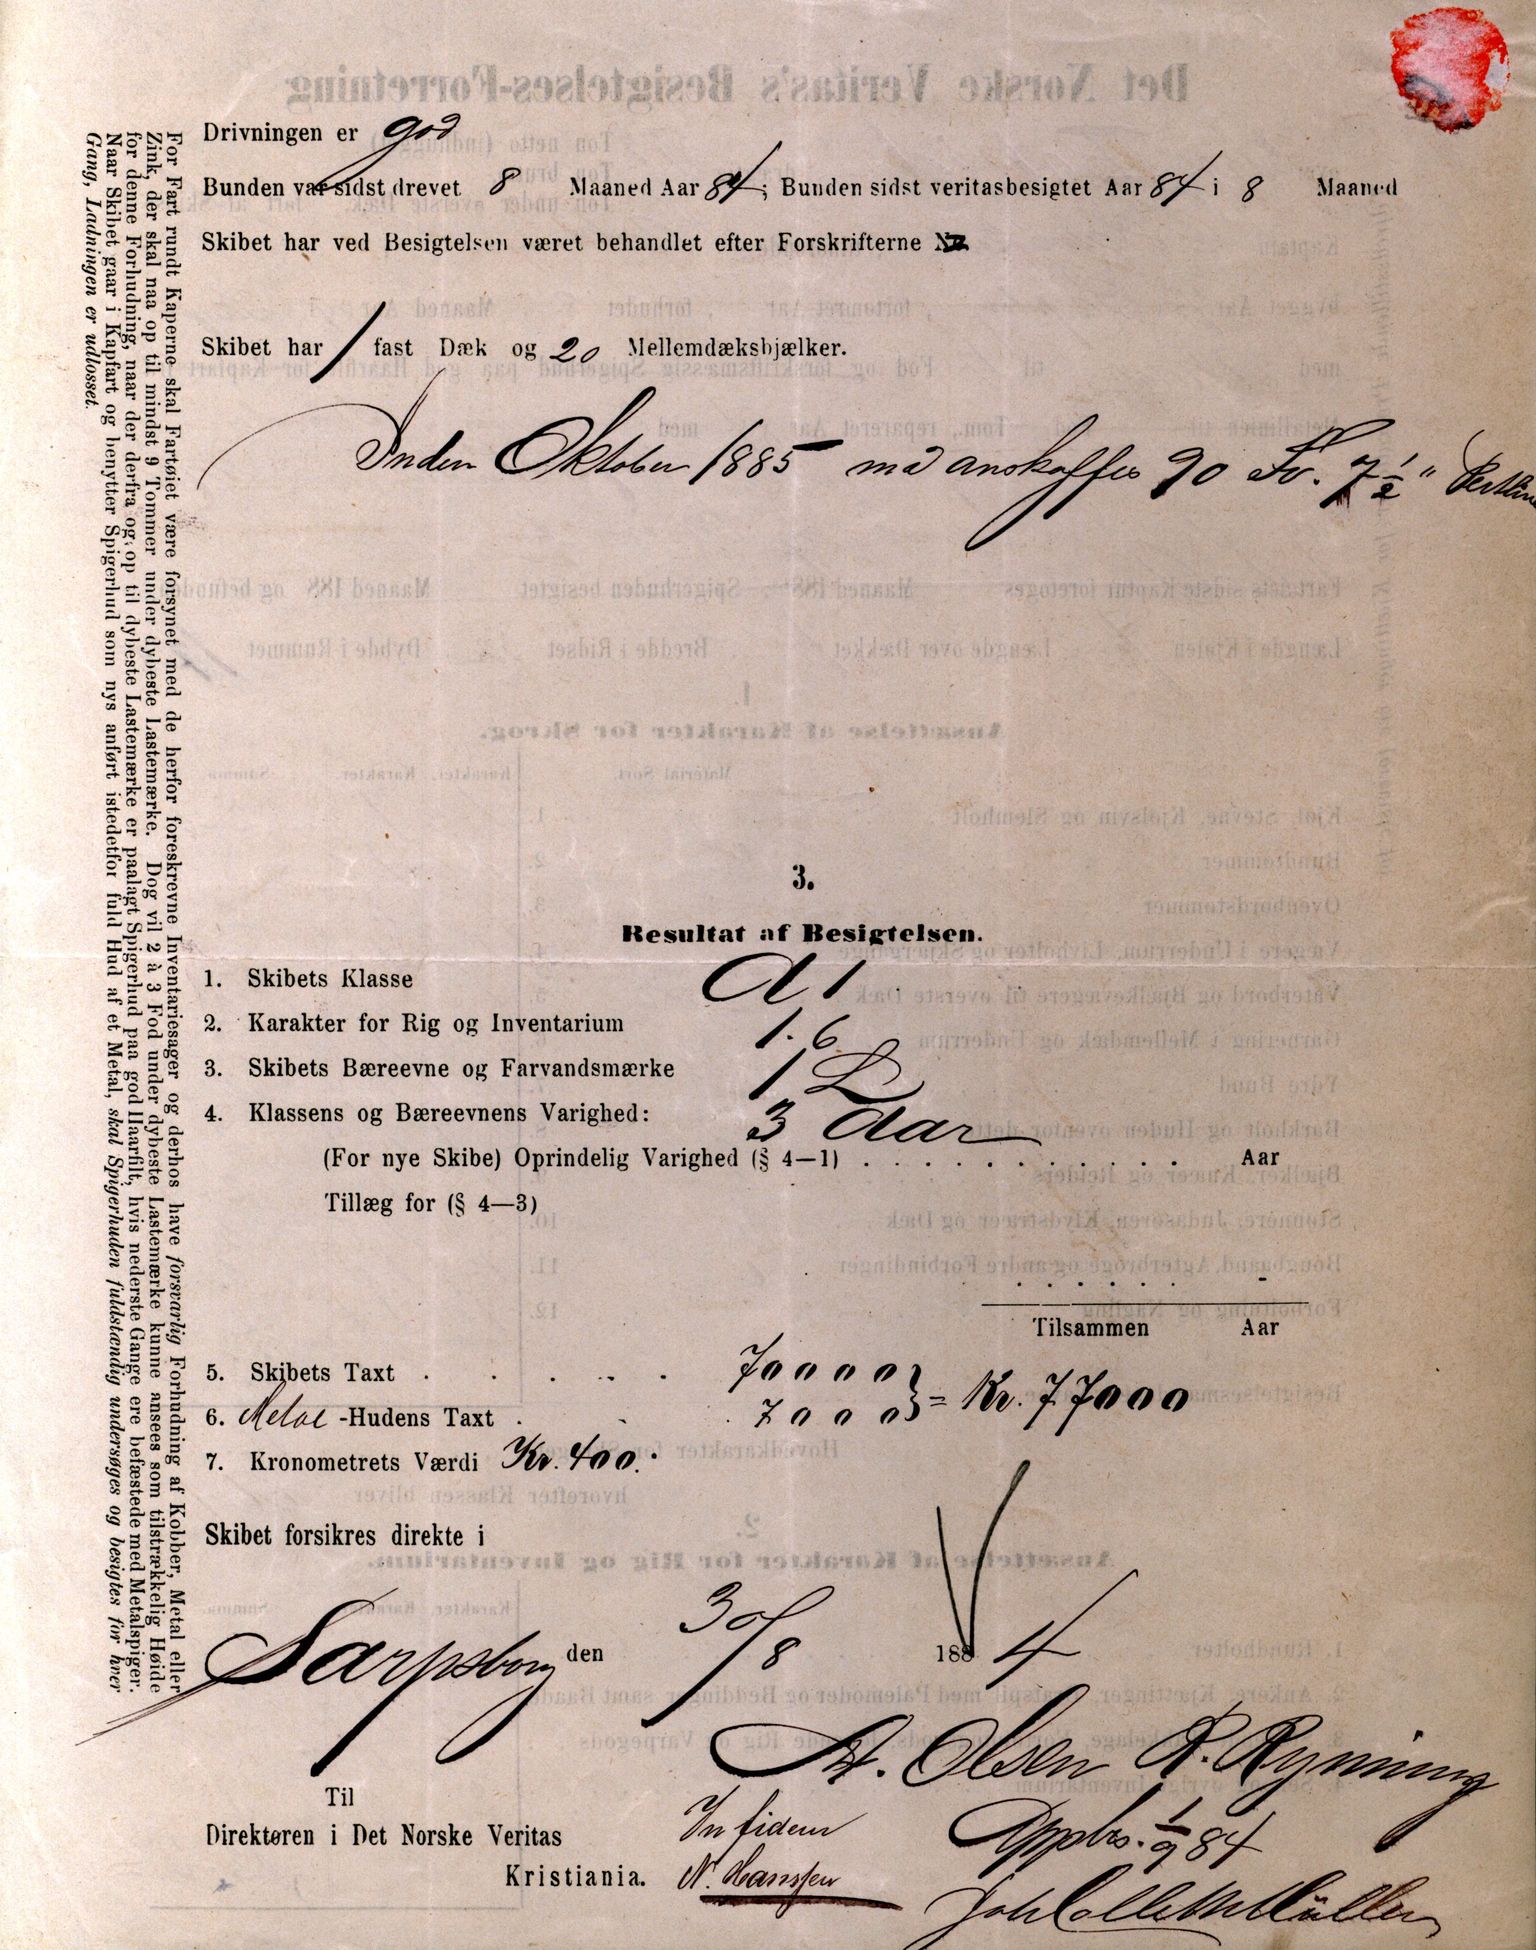 Drivningen er god
Bunden var sidst drevet 8 Maaned Aar 84; Bunden sidst veritasbesigtet Aar 84 i 8 Maaned
Skibet har ved Besigtelsen været behandlet efter Forskrifterne
Skibet har 1 fast Dæk og 20 Mellemdæksbjælker.
Inden Oktober 1885 må anskaffes 90 Fv. 7 1/2"
3.
Resultat af Besigtelsen.
1. Skibets Klasse A 1
2. Karakter for Rig og Inventarium 1.6
3. Skibets Bæreevne og Farvandsmærke 1 L
4. Klassens og Bæreevnens Varighed: 3 Aar
(For nye Skibe) Oprindelig Varighed (§ 4—1) . . . . . . . . . . . Aar
Tillæg for (§ 4—3)
. . . . . . -
Tilsammen Aar
5. Skibets Taxt . . . . . 70000 } = Kr. 77000
6. -Hudens Taxt . . . 7000
7. Kronometrets Værdi Kr. 400.
Skibet forsikres direkte i
Sarpsborg den 30/8 1884
A. Olsen R. Rynning
Til
Direktøren i Det Norske Veritas
Kristiania.
In fidem
N. Hanssen
Appbr. 1/9 84
Joh Collett Müller
For Fart rundt Kaperne skal Fartøiet være forsynet med de herfor foreskrevne Inventariesager og derhos have forsvarlig Forhudning af Kobber, Metal eller
Zink, der skal naa op til mindst 9 Tommer under dybeste Lastemærke. Dog vil 2 à 3 Fod under dybeste Lastemærke kunne ansees som tilstrækkelig Høide
for denne Forhudning, naar der derfra og op til dybeste Lastemærke er paalagt Spigerhud paa god Haarfilt, hvis nederste Gange ere befæstede med Metalspiger.
Naar Skibet gaar i Kapfart og benytter Spigerhud som nys anført istedetfor fuld Hud af et Metal, skal Spigerhuden fuldstændig undersøges og besigtes for hver
Gang, Ladningen er udlosset.